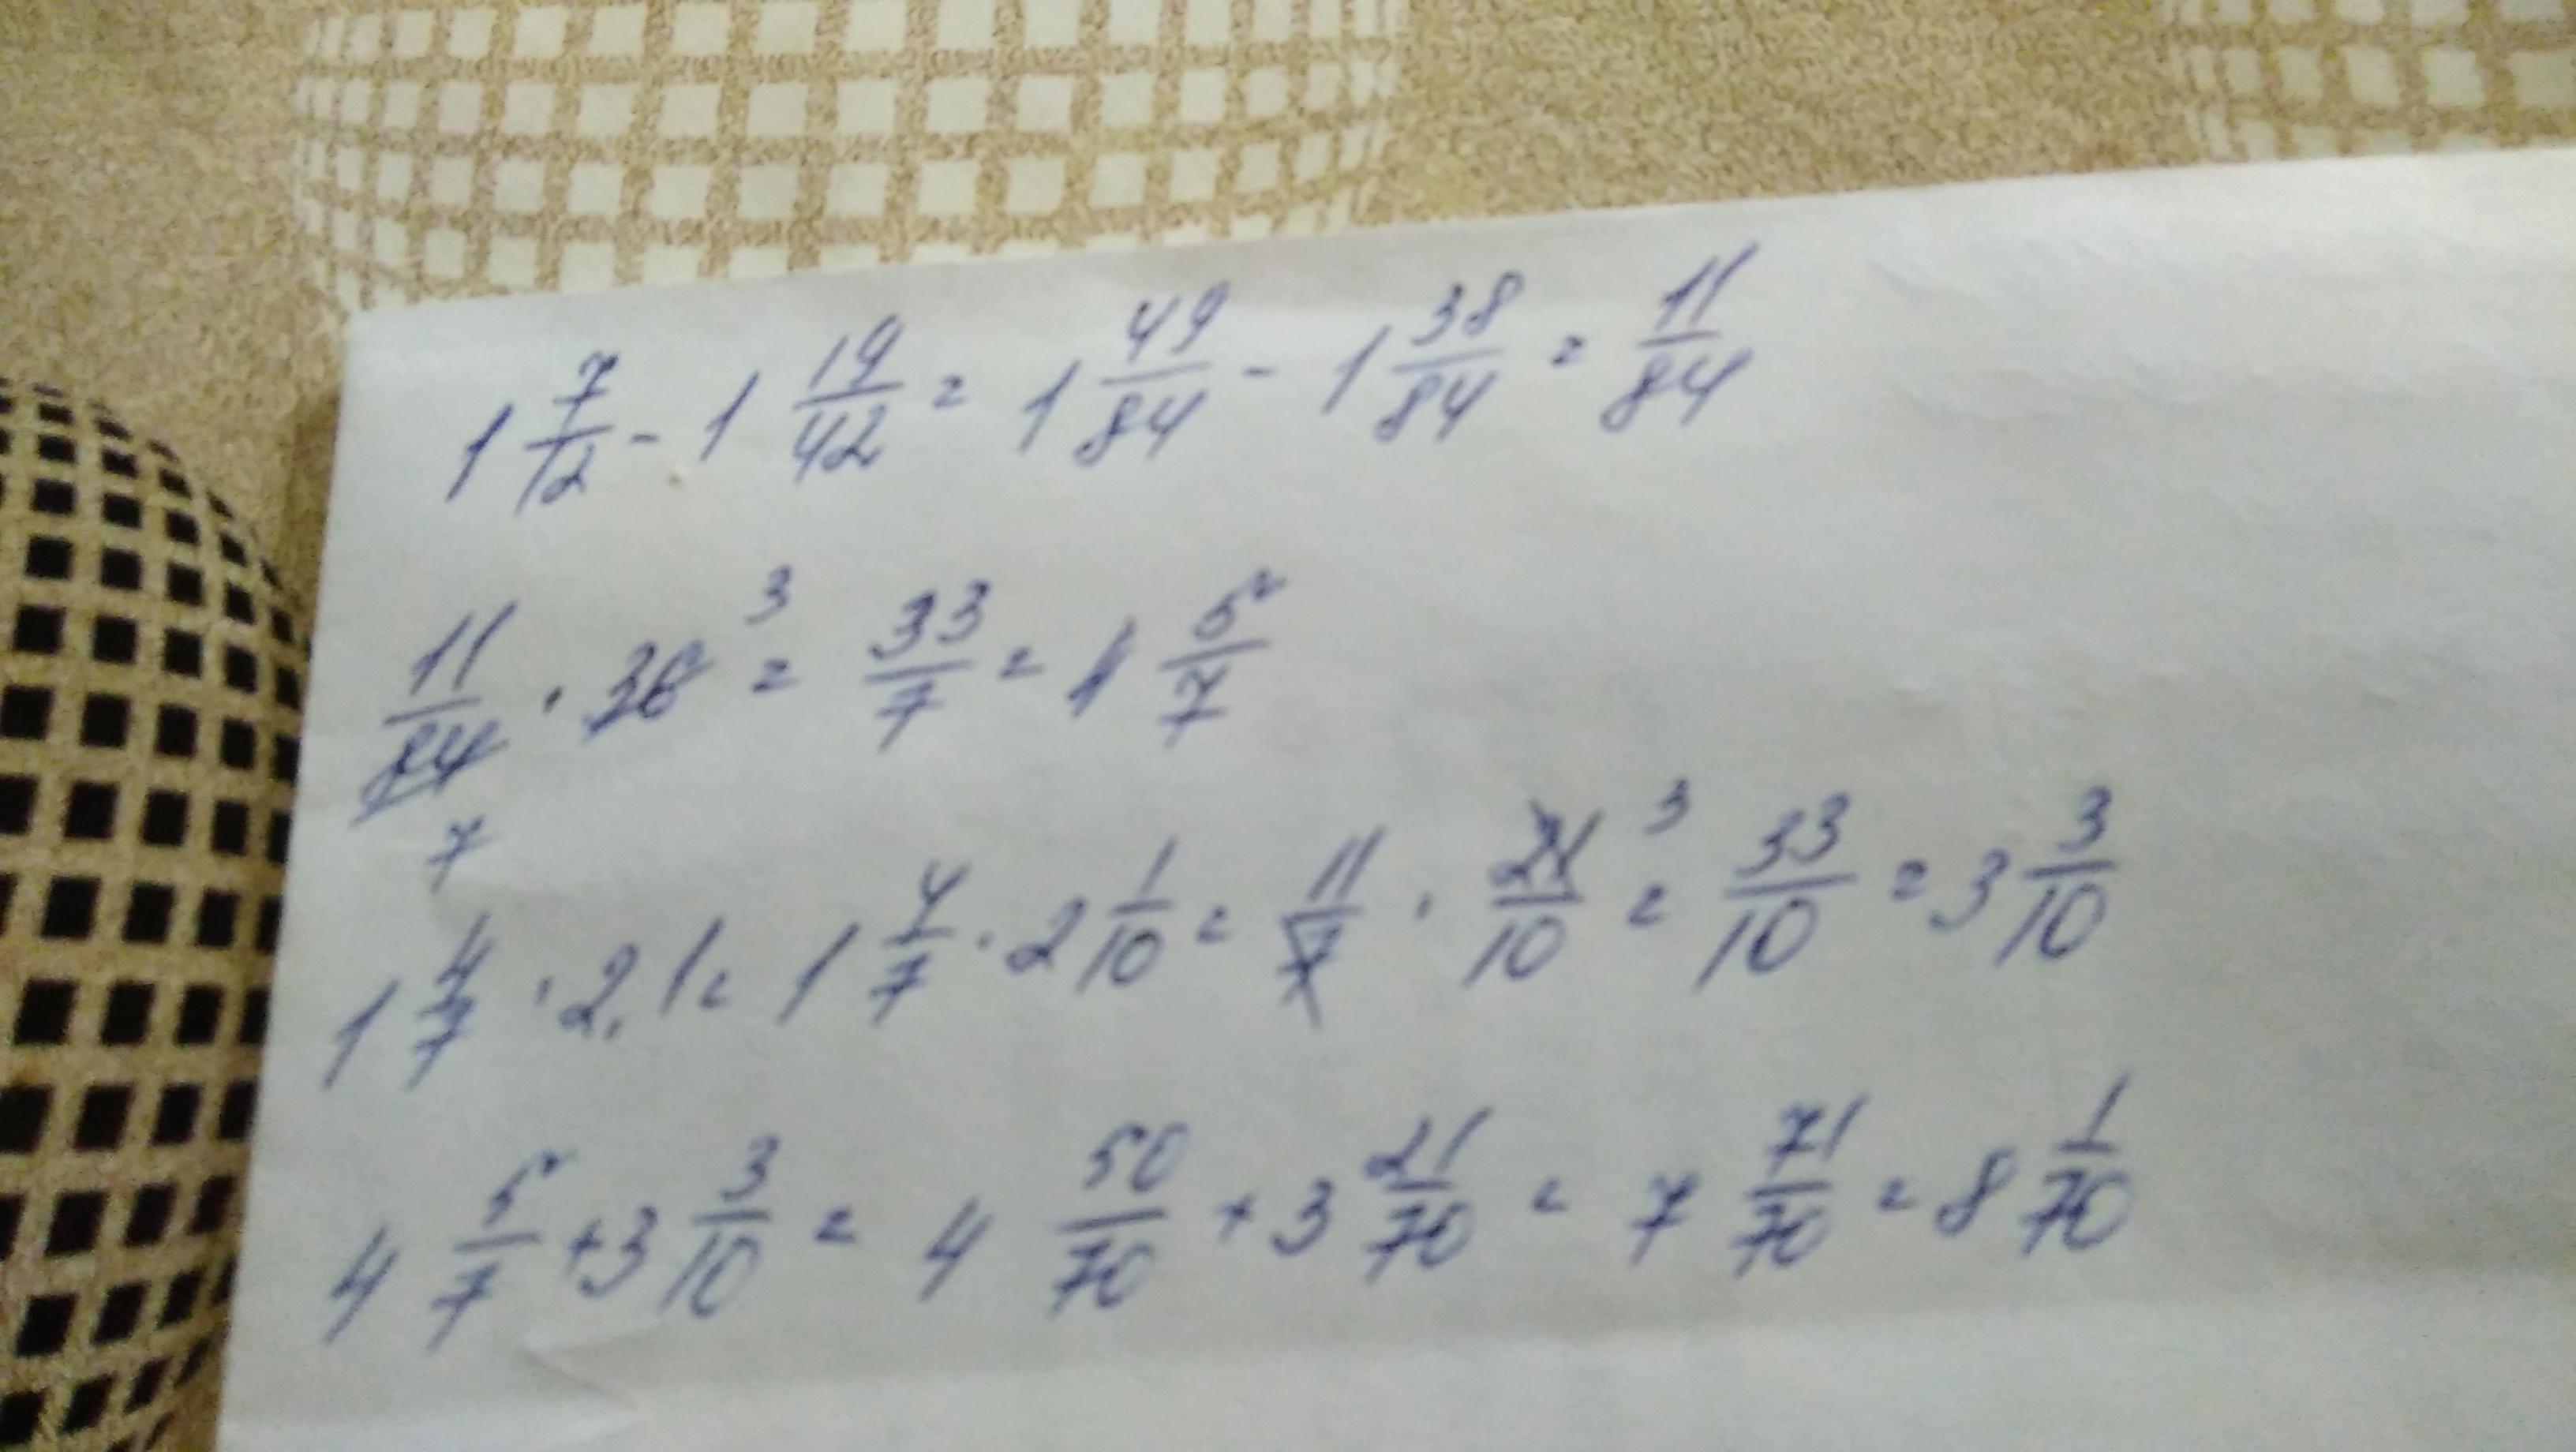 1 7/12 - 1 19/42 = 1 49/84 - 1 38/84 = 11/84
11/84 7 · 36 3 = 33/7 = 4 5/7
1 4/7 · 2,1 = 1 4/7 · 2 1/10 = 11/7 · 21/10 3 = 33/10 = 3 3/10
4 5/7 + 3 3/10 = 4 50/70 + 3 21/70 = 7 71/70 = 8 1/70